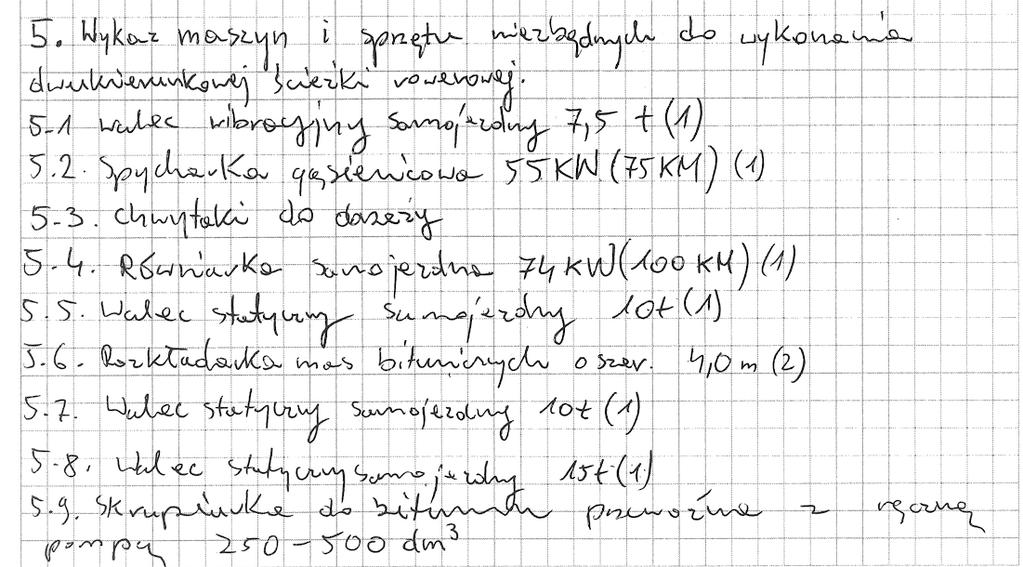 5. Wykaz maszyn i sprzętu niezbędnych do wykonania
dwukierunkowej ścieżki rowerowej.
5.1 walec wibracyjny samojezdny 7,5 t (1)
5.2. Spycharka gąsienicowa 55 KW (75 KM) (1)
5.3. chwytaki do
5.4. Równiarka samojezdna 74 KW (100 KM) (1)
5.5. Walec statyczny samojezdny 10t (1)
5.6. Rozkładarka mas bitumicznych o szer. 4,0 m (2)
5.7. Walec statyczny samojezdny 10t (1)
5.8. Walec statyczny samojezdny 15t (1)
5.9. Skrapiarka do bitumu przewoźna z ręczną
pompą 250 - 500 dm³